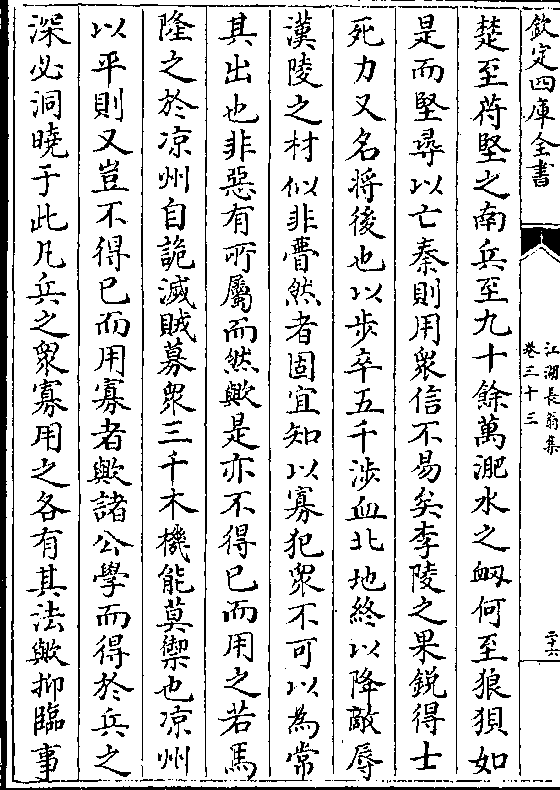 欽定四庫全書
江湖長翁集
卷三十三
二十六
楚至苻堅之南兵至九十餘萬淝水之衂何至狼狽如
是而堅尋以亡秦則用衆信不易矣李陵之果鋭得士
死力又名将後也以歩卒五千涉血北地終以降敵辱
漢陵之材似非瞢然者固宜知以寡犯衆不可以為常
其出也非惡有所屬而然歟是亦不得已而用之若馬
隆之於凉州自詭滅賊募衆三千木機能莫禦也凉州
以平則又豈不得已而用寡者歟諸公學而得於兵之
深必洞曉于此凡兵之衆寡用之各有其法歟抑臨事